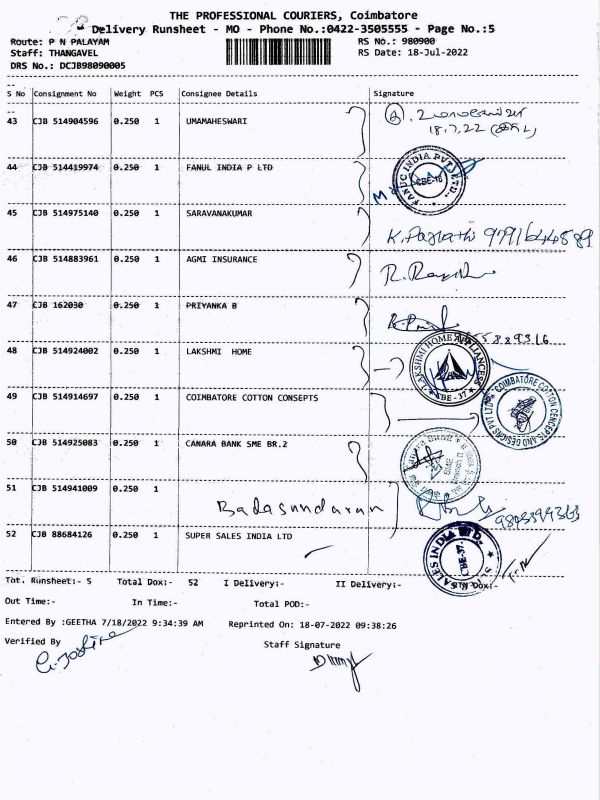 THE PROFESSIONAL COURIERS, Coimbatore
Delivery Runsheet - MO - Phone No.:0422-3505555 - Page No.:5
Route: P N PALAYAM RS No.: 980900
Staff: THANGAVEL RS Date: 18-Jul-2022
DRS No.: DCJB98090005
S No Consignment No Weight PCS Consignee Details Signature
43 CJB 514904596 0.250 1 UMAMAHESWARI
18.7.22
44 CJB 514419974 0.250 1 FANUL INDIA P LTD
FANUC INDIA PVT. LTD., CBE-18
45 CJB 514975140 0.250 1 SARAVANAKUMAR
46 CJB 514883961 0.250 1 AGMI INSURANCE
47 CJB 162030 0.250 1 PRIYANKA B
48 CJB 514924002 0.250 1 LAKSHMI HOME
LAKSHMI HOME APPLIANCES CBE-37
49 CJB 514914697 0.250 1 COIMBATORE COTTON CONSEPTS
COIMBATORE COTTON CENCEPTS AND DESIGNS PVT LTD
50 CJB 514925083 0.250 1 CANARA BANK SME BR.2
51 CJB 514941009 0.250 1
Badasundaran
52 CJB 88684126 0.250 1 SUPER SALES INDIA LTD
CBE-37.
Tot. Runsheet:- 5 Total Dox:- 52 I Delivery:- II Delivery:- Dox:-
Out Time:- In Time:- Total POD:-
Entered By :GEETHA 7/18/2022 9:34:39 AM Reprinted On: 18-07-2022 09:38:26
Verified By Staff Signature